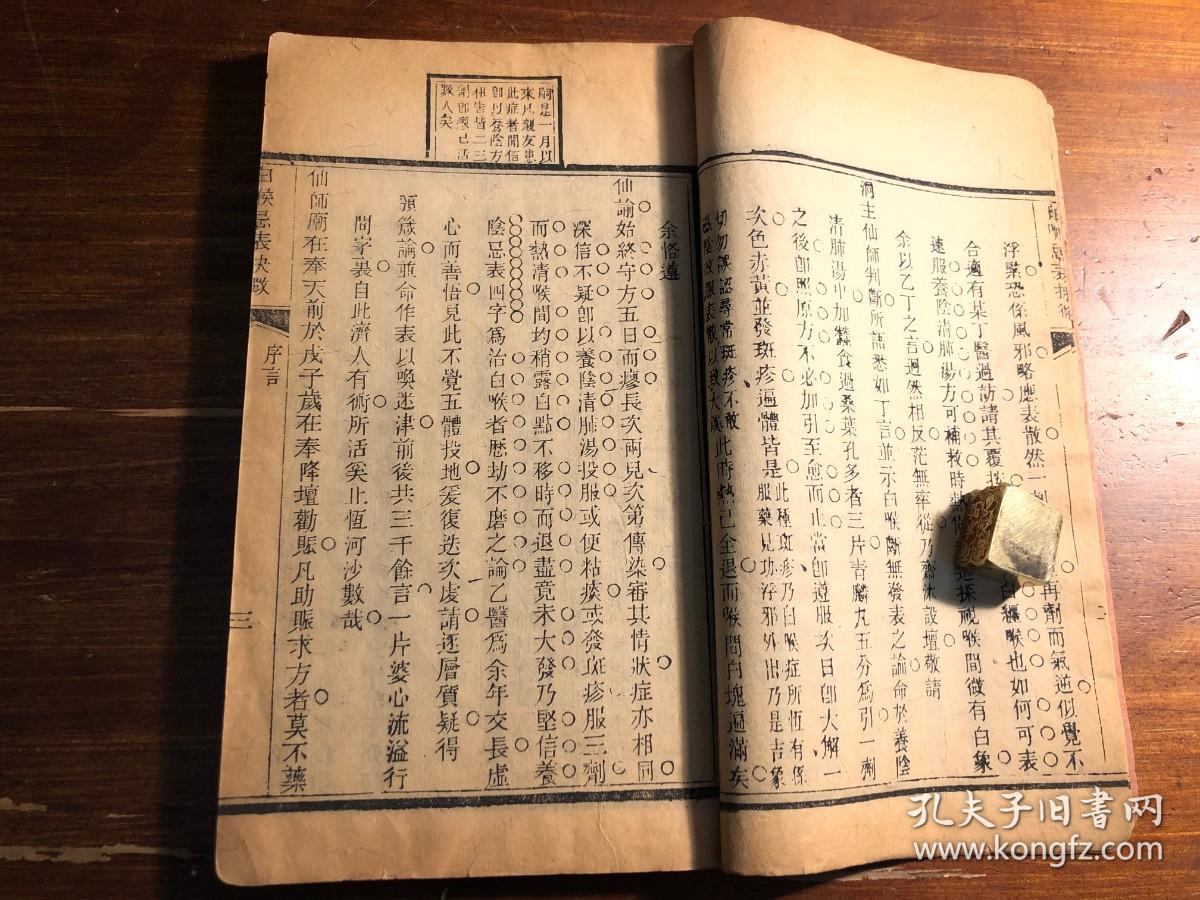 浮緊恐係風邪略應表散然一
再劑而氣逆似覺不
合適有某丁醫過訪請其覆
白纏喉也如何可表
速服養陰清肺湯方可補救時熱
探視喉間微有白象
余以乙丁之言迥然相反茫無率從乃齋沐設壇敬請
洞主仙師判斷所語悉如丁言並示白喉斷無發表之論命於養陰
清肺湯中加蠶食過桑葉孔多者三片青麟丸五分爲引一劑
之後卽照原方不必加引至愈而止當卽遵服次日卽大解一
次色赤黃並發斑疹遍體皆是
此種斑疹乃白喉症所恆有係
服藥見功浮邪外出乃是吉象
切勿誤認尋常斑疹不敢
此時熱已全退而喉間白塊遍滿矣
嗣是一月以
來凡親友患
此症者聞信
卽以養陰方
相告皆二三
劑卽痊已活
數人矣
余恪遵
仙諭始終守方五日而瘳長次兩兒次第傳染審其情狀症亦相同
深信不疑卽以養陰清肺湯投服或便粘痰或發斑疹服三劑
而熱清喉間均稍露白點不移時而退盡竟未大發乃堅信養
陰忌表四字爲治白喉者歷劫不磨之論乙醫爲余年交長虛
心而善悟見此不覺五體投地爰復迭次虔請逐層質疑得
領箴論並命作表以喚迷津前後共三千餘言一片婆心流溢行
間字裏自此濟人有術所活奚止恆河沙數哉
仙師廟在奉天前於戊子歲在奉降壇勸賑凡助賑求方者莫不藥
白喉忌表抉微
序言
三
孔夫子旧书网
www.kongfz.com